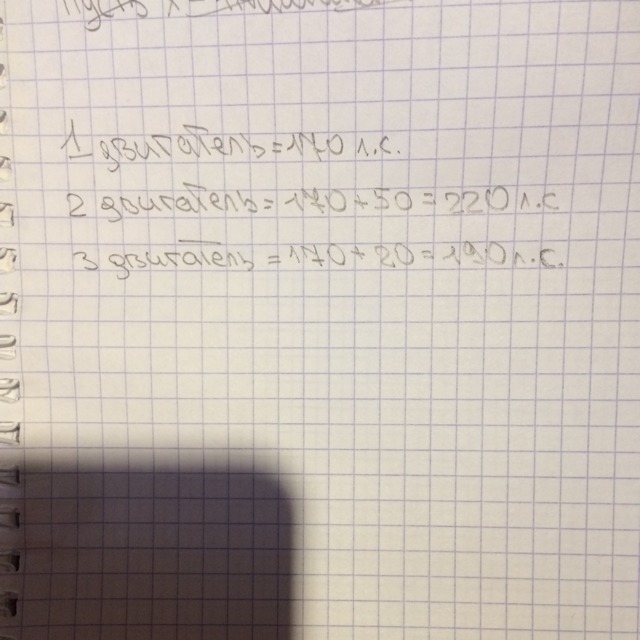 1 двигатель = 170 л.с.
2 двигатель = 170 + 50 = 220 л.с
3 двигатель = 170 + 20 = 190 л.с.